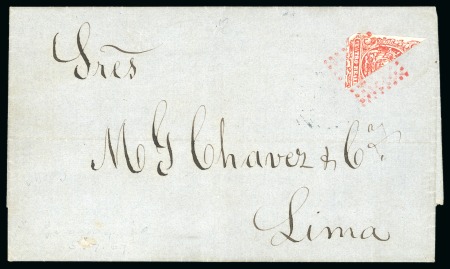 Sres
M G Chavez & Ca
Lima